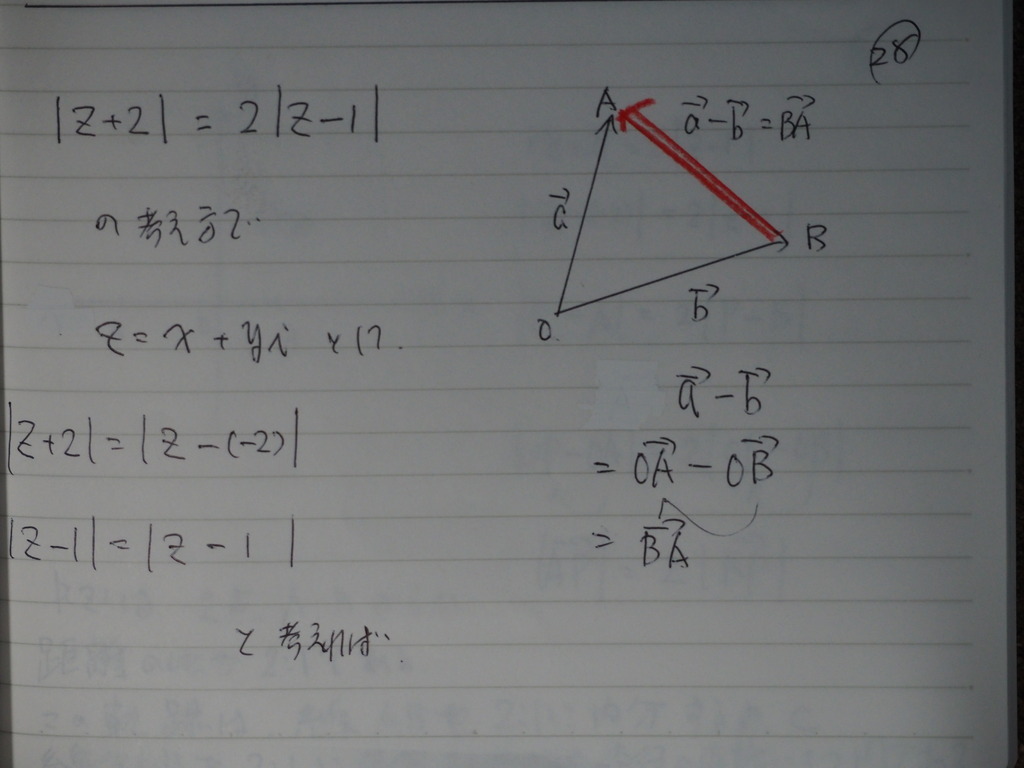 28
|z+2| = 2|z-1|
の考え方で
z = x + yi とけ.
|z+2| = |z-(-2)|
|z-1| = |z - 1 |
と考えれば
A
a→ - b→ = BA→
a→
B
b→
O
a→ - b→
= OA→ - OB→
= BA→